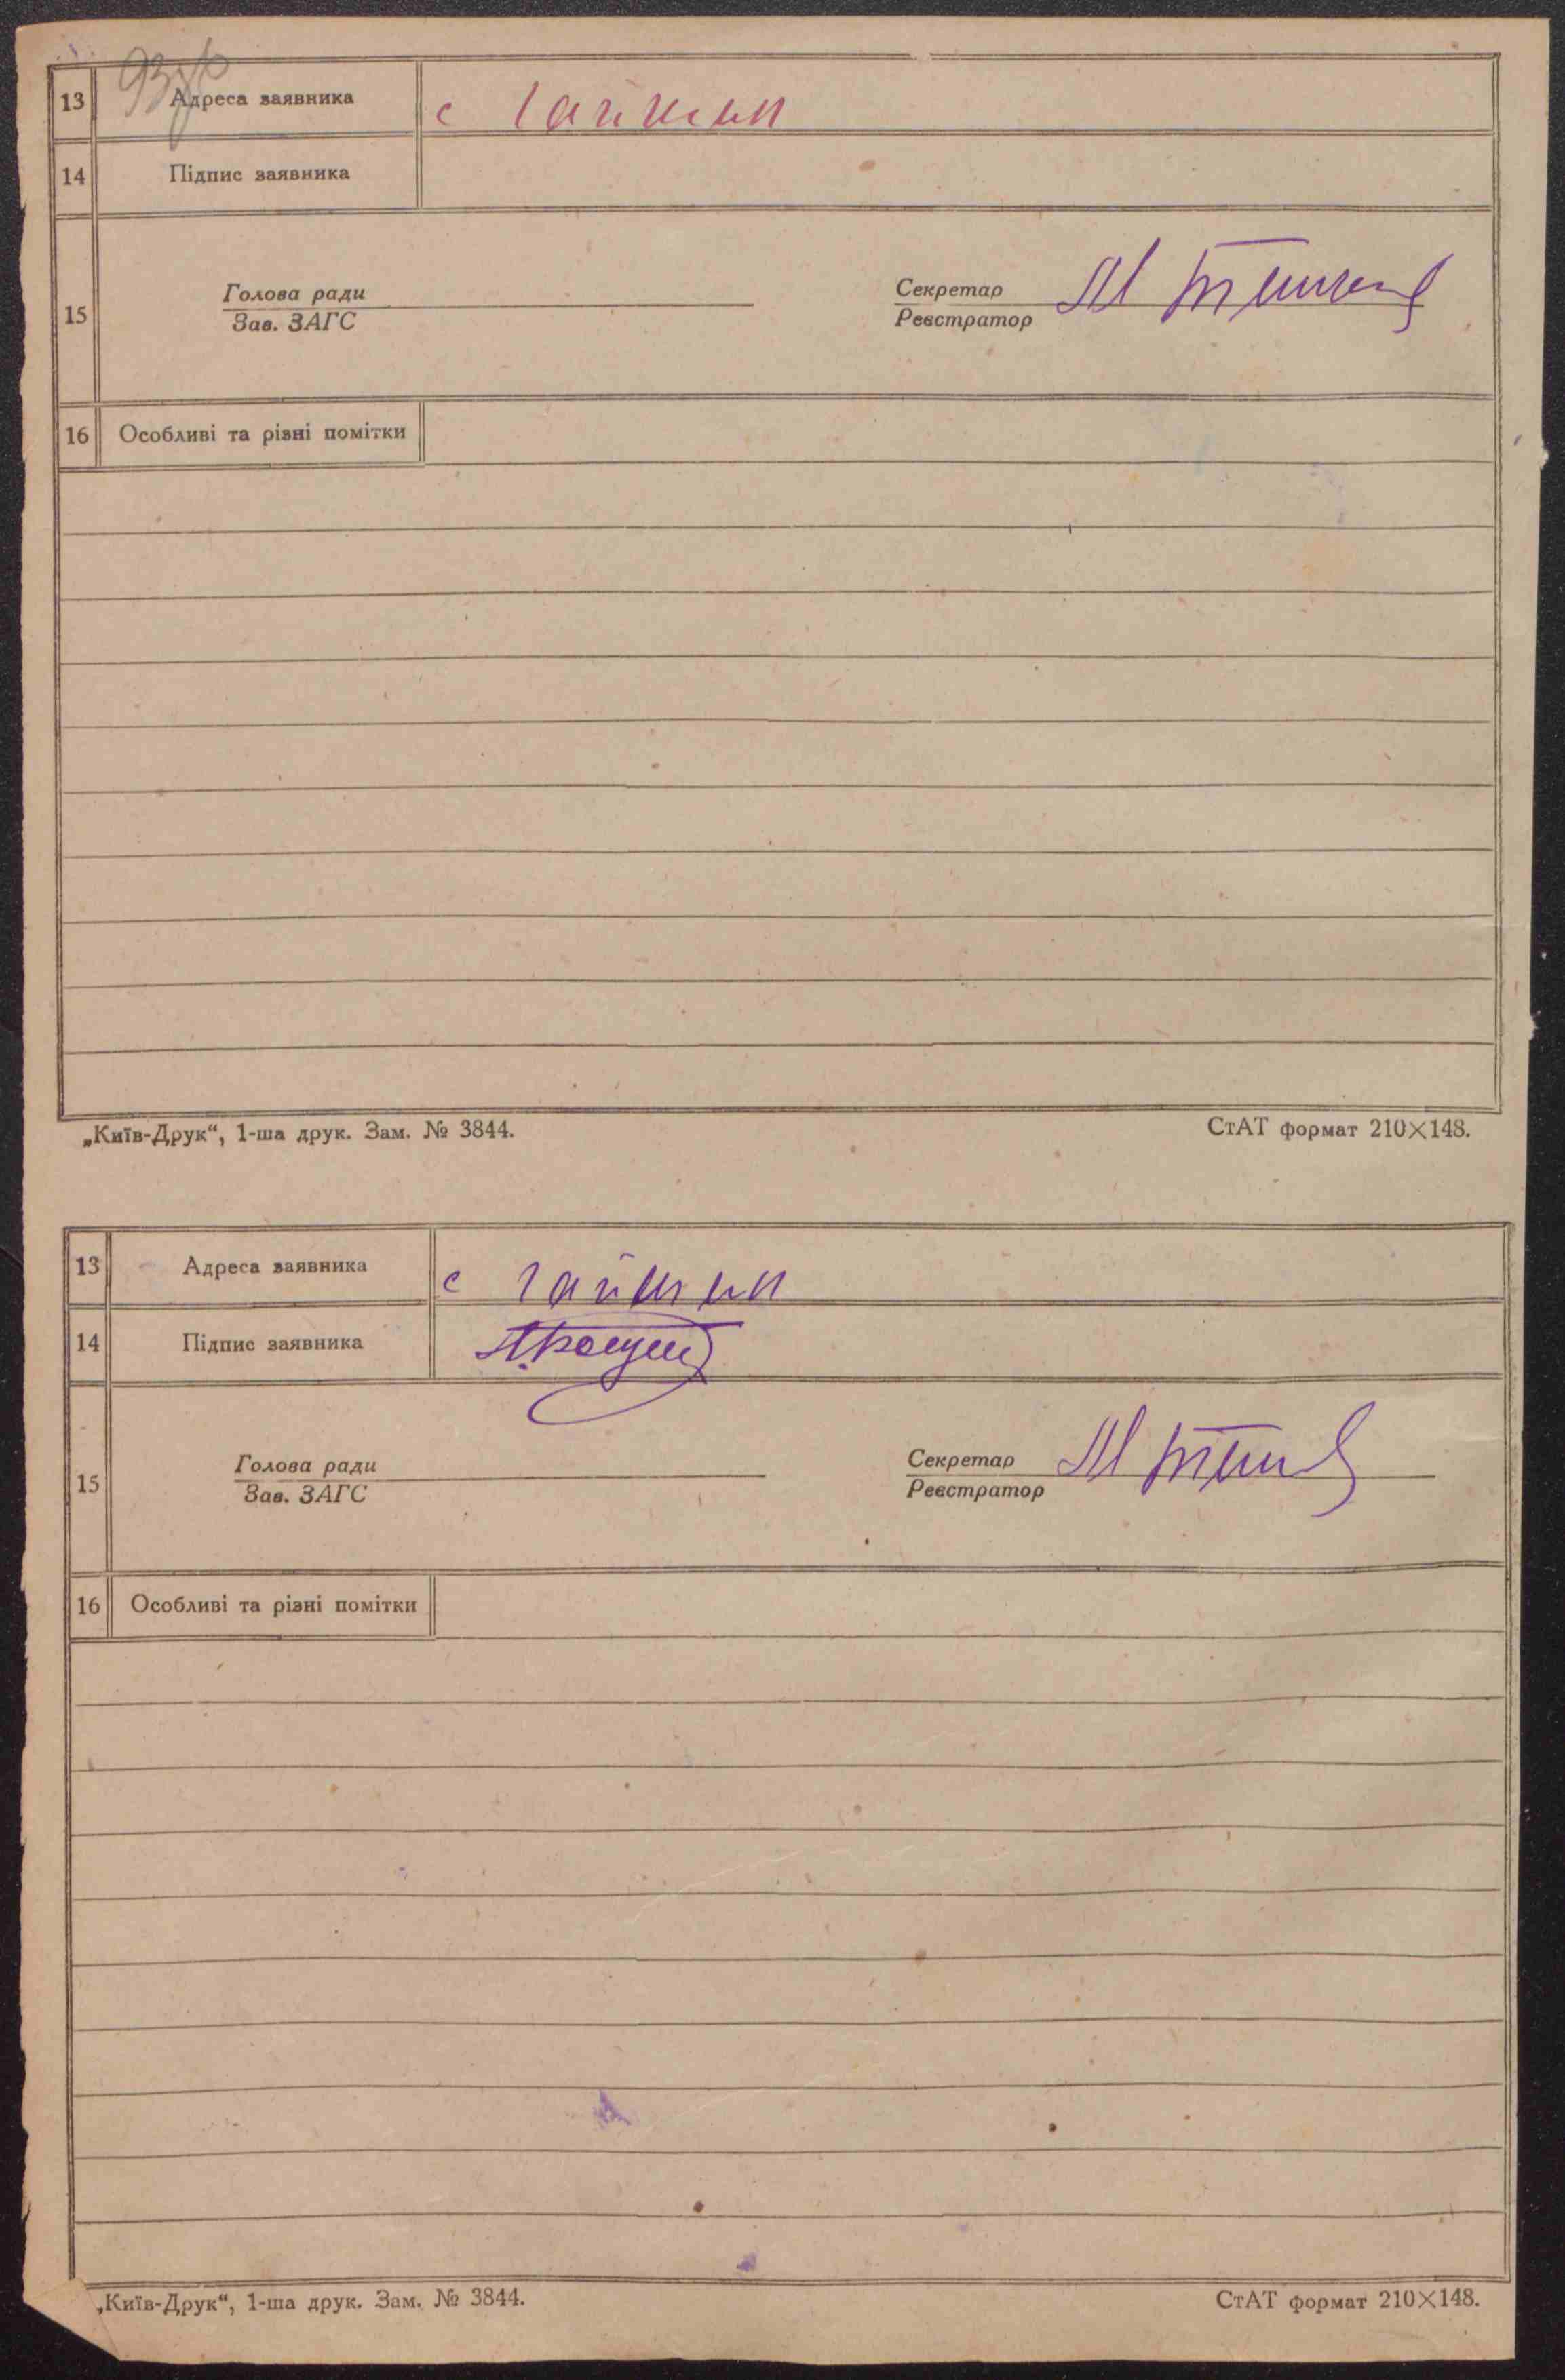 13 Адреса заявника с Гайшин
14 Підпис заявника
Голова ради Секретар
15
Зав. ЗАГС Реєстратор
16 Особливі та різні помітки
„Київ-Друк“, 1-ша друк. Зам. № 3844. СтАТ формат 210×148.
13 Адреса заявника с Гайшин
14 Підпис заявника
Голова ради Секретар
15
Зав. ЗАГС Реєстратор
16 Особливі та різні помітки
„Київ-Друк“, 1-ша друк. Зам. № 3844. СтАТ формат 210×148.